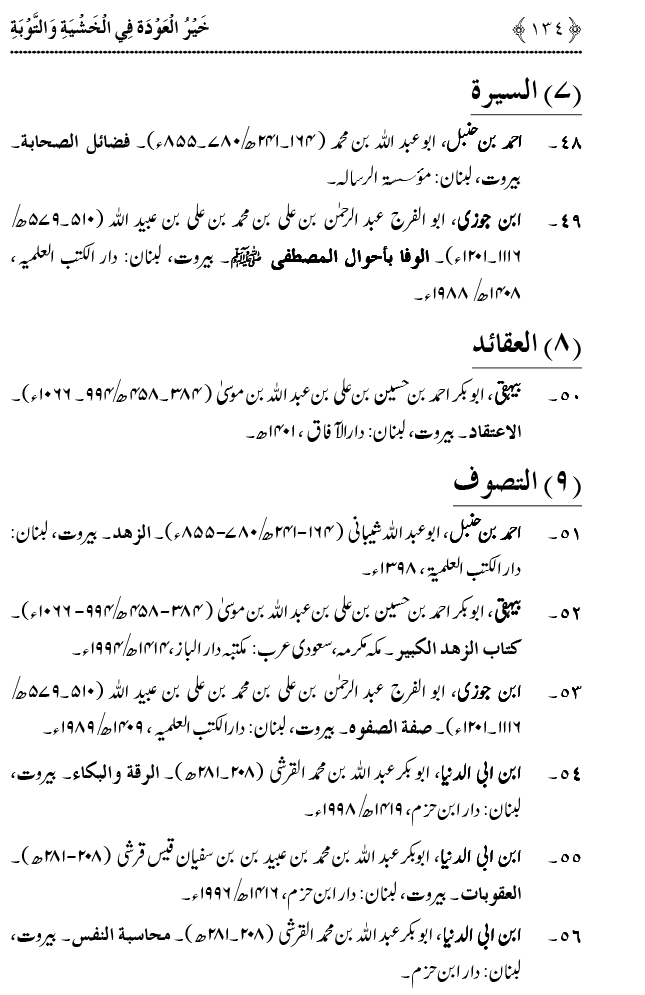 خَيْرُ الْعَوْدَة فِي الْخَشْيَةِ وَالتَّوْبَةِ ﴿١٣٤﴾
(٧) السيرة
٤٨۔ احمد بن حنبل، ابو عبد اللہ بن محمد (۱۶۴۔۲۴۱ھ/۷۸۰۔۸۵۵ء)۔ فضائل الصحابة۔
بیروت، لبنان: مؤسسۃ الرسالہ۔
٤٩۔ ابن جوزی، ابو الفرج عبد الرحمٰن بن علی بن محمد بن علی بن عبید اللہ (۵۱۰۔۵۷۹ھ/
۱۱۱۶۔۱۲۰۱ء)۔ الوفا بأحوال المصطفى ﷺ۔ بیروت، لبنان: دار الکتب العلمیہ،
۱۴۰۸ھ/ ۱۹۸۸ء۔
(٨) العقائد
٥٠۔ بیہقی، ابو بکر احمد بن حسین بن علی بن عبد اللہ بن موسیٰ (۳۸۴۔۴۵۸ھ/۹۹۴۔۱۰۶۶ء)۔
الاعتقاد۔ بیروت، لبنان: دار الآفاق، ۱۴۰۱ھ۔
(٩) التصوف
٥١۔ احمد بن حنبل، ابو عبد اللہ شیبانی (۱۶۴-۲۴۱ھ/۷۸۰-۸۵۵ء)۔ الزهد۔ بیروت، لبنان:
دار الکتب العلمیۃ، ۱۳۹۸ء۔
٥٢۔ بیہقی، ابو بکر احمد بن حسین بن علی بن عبد اللہ بن موسیٰ (۳۸۴-۴۵۸ھ/۹۹۴-۱۰۶۶ء)۔
کتاب الزهد الکبیر۔ مکہ مکرمہ، سعودی عرب: مکتبہ دار الباز، ۱۴۱۴ھ/۱۹۹۴ء۔
٥٣۔ ابن جوزی، ابو الفرج عبد الرحمٰن بن علی بن محمد بن علی بن عبید اللہ (۵۱۰۔۵۷۹ھ/
۱۱۱۶۔۱۲۰۱ء)۔ صفة الصفوه۔ بیروت، لبنان: دار الکتب العلمیہ، ۱۴۰۹ھ/۱۹۸۹ء۔
٥٤۔ ابن ابی الدنیا، ابو بکر عبد اللہ بن محمد القرشی (۲۰۸۔۲۸۱ھ)۔ الرقة والبکاء۔ بیروت،
لبنان: دار ابن حزم، ۱۴۱۹ھ/۱۹۹۸ء۔
٥٥۔ ابن ابی الدنیا، ابوبکر عبد اللہ بن محمد بن عبید بن بن سفیان قیس قرشی (۲۰۸-۲۸۱ھ)۔
العقوبات۔ بیروت، لبنان: دار ابن حزم، ۱۴۱۶ھ/۱۹۹۶ء۔
٥٦۔ ابن ابی الدنیا، ابو بکر عبد اللہ بن محمد القرشی (۲۰۸۔۲۸۱ھ)۔ محاسبة النفس۔ بیروت،
لبنان: دار ابن حزم۔